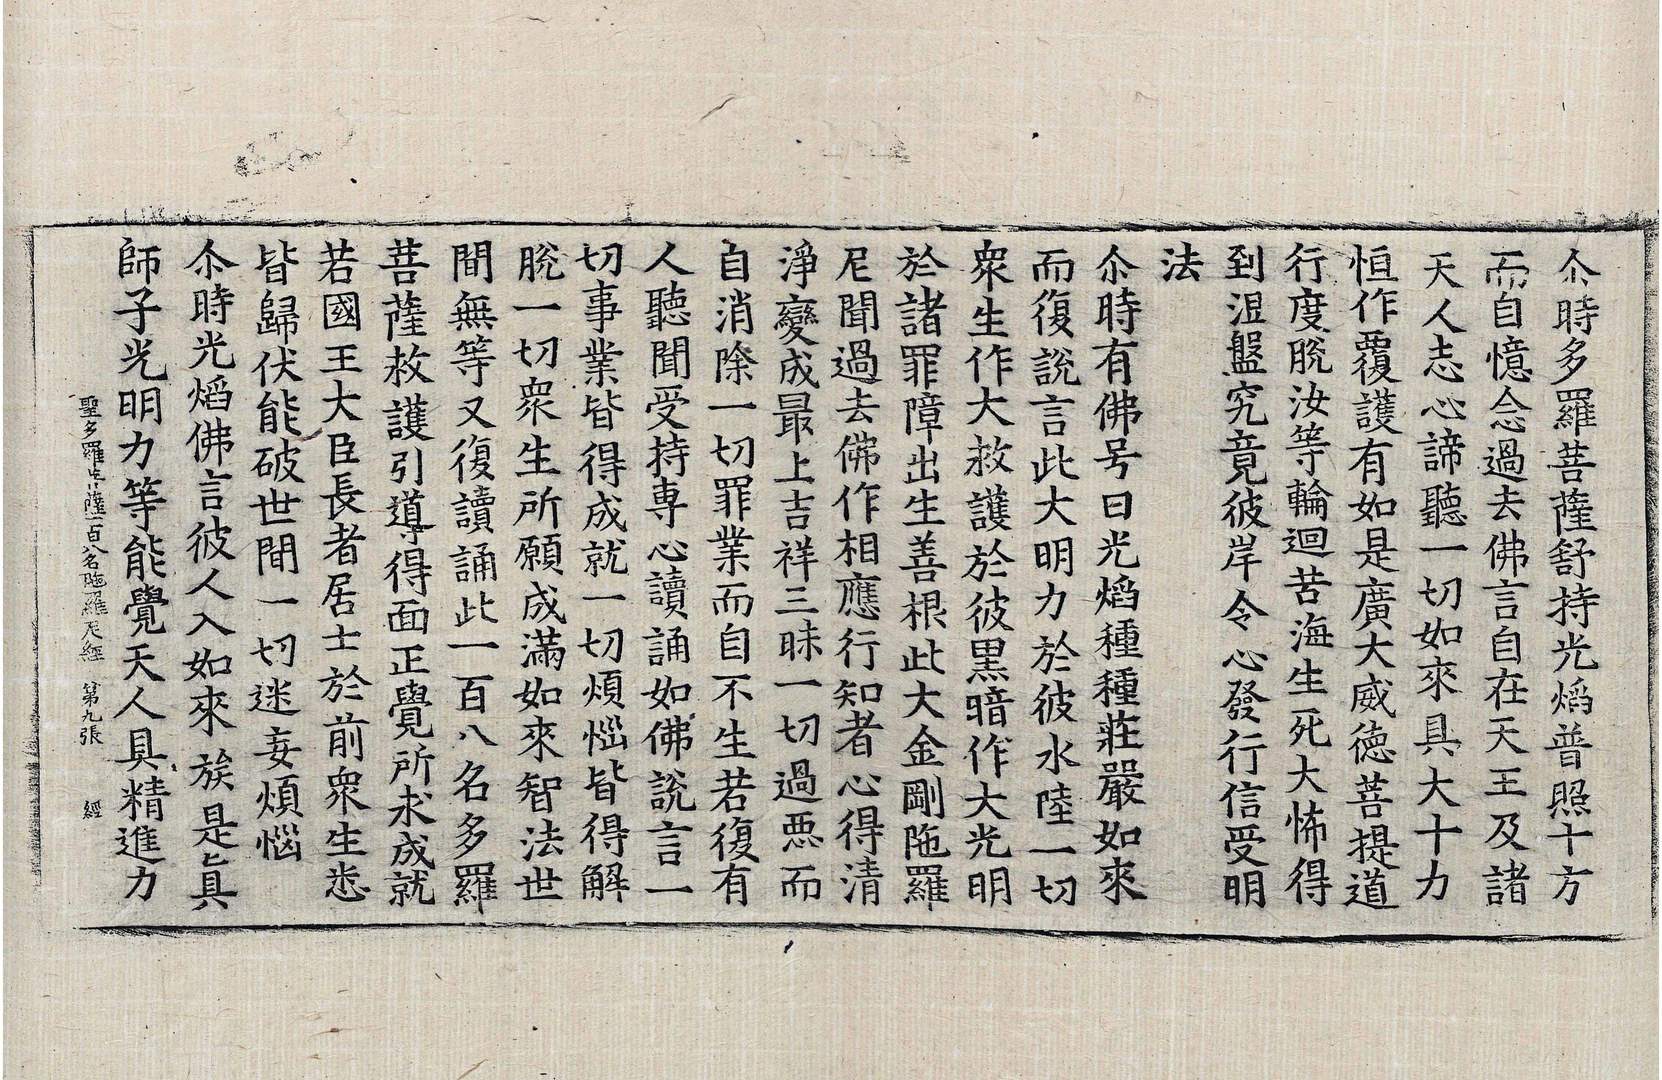 尒時多羅菩薩舒持光焰普照十方
而自憶念過去佛言自在天王及諸
天人志心諦聽一切如來具大十力
恒作覆護有如是廣大威德菩提道
行度脫汝等輪迴苦海生死大怖得
到涅盤究竟彼岸令心發行信受明
法
尒時有佛号曰光焰種種莊嚴如來
而復說言此大明力於彼水陸一切
衆生作大救護於彼黑暗作大光明
於諸罪障出生善根此大金剛陁羅
尼聞過去佛作相應行知者心得清
淨變成最上吉祥三昧一切過惡而
自消除一切罪業而自不生若復有
人聽聞受持專心讀誦如佛說言一
切事業皆得成就一切煩惱皆得解
脫一切衆生所願成滿如來智法世
間無等又復讀誦此一百八名多羅
菩薩救護引導得面正覺所求成就
若國王大臣長者居士於前衆生悉
皆歸伏能破世間一切迷妄煩惱
尒時光焰佛言彼人入如來族是眞
師子光明力等能覺天人具精進力
聖多羅菩薩一百八名陁羅尼經 第九張 經